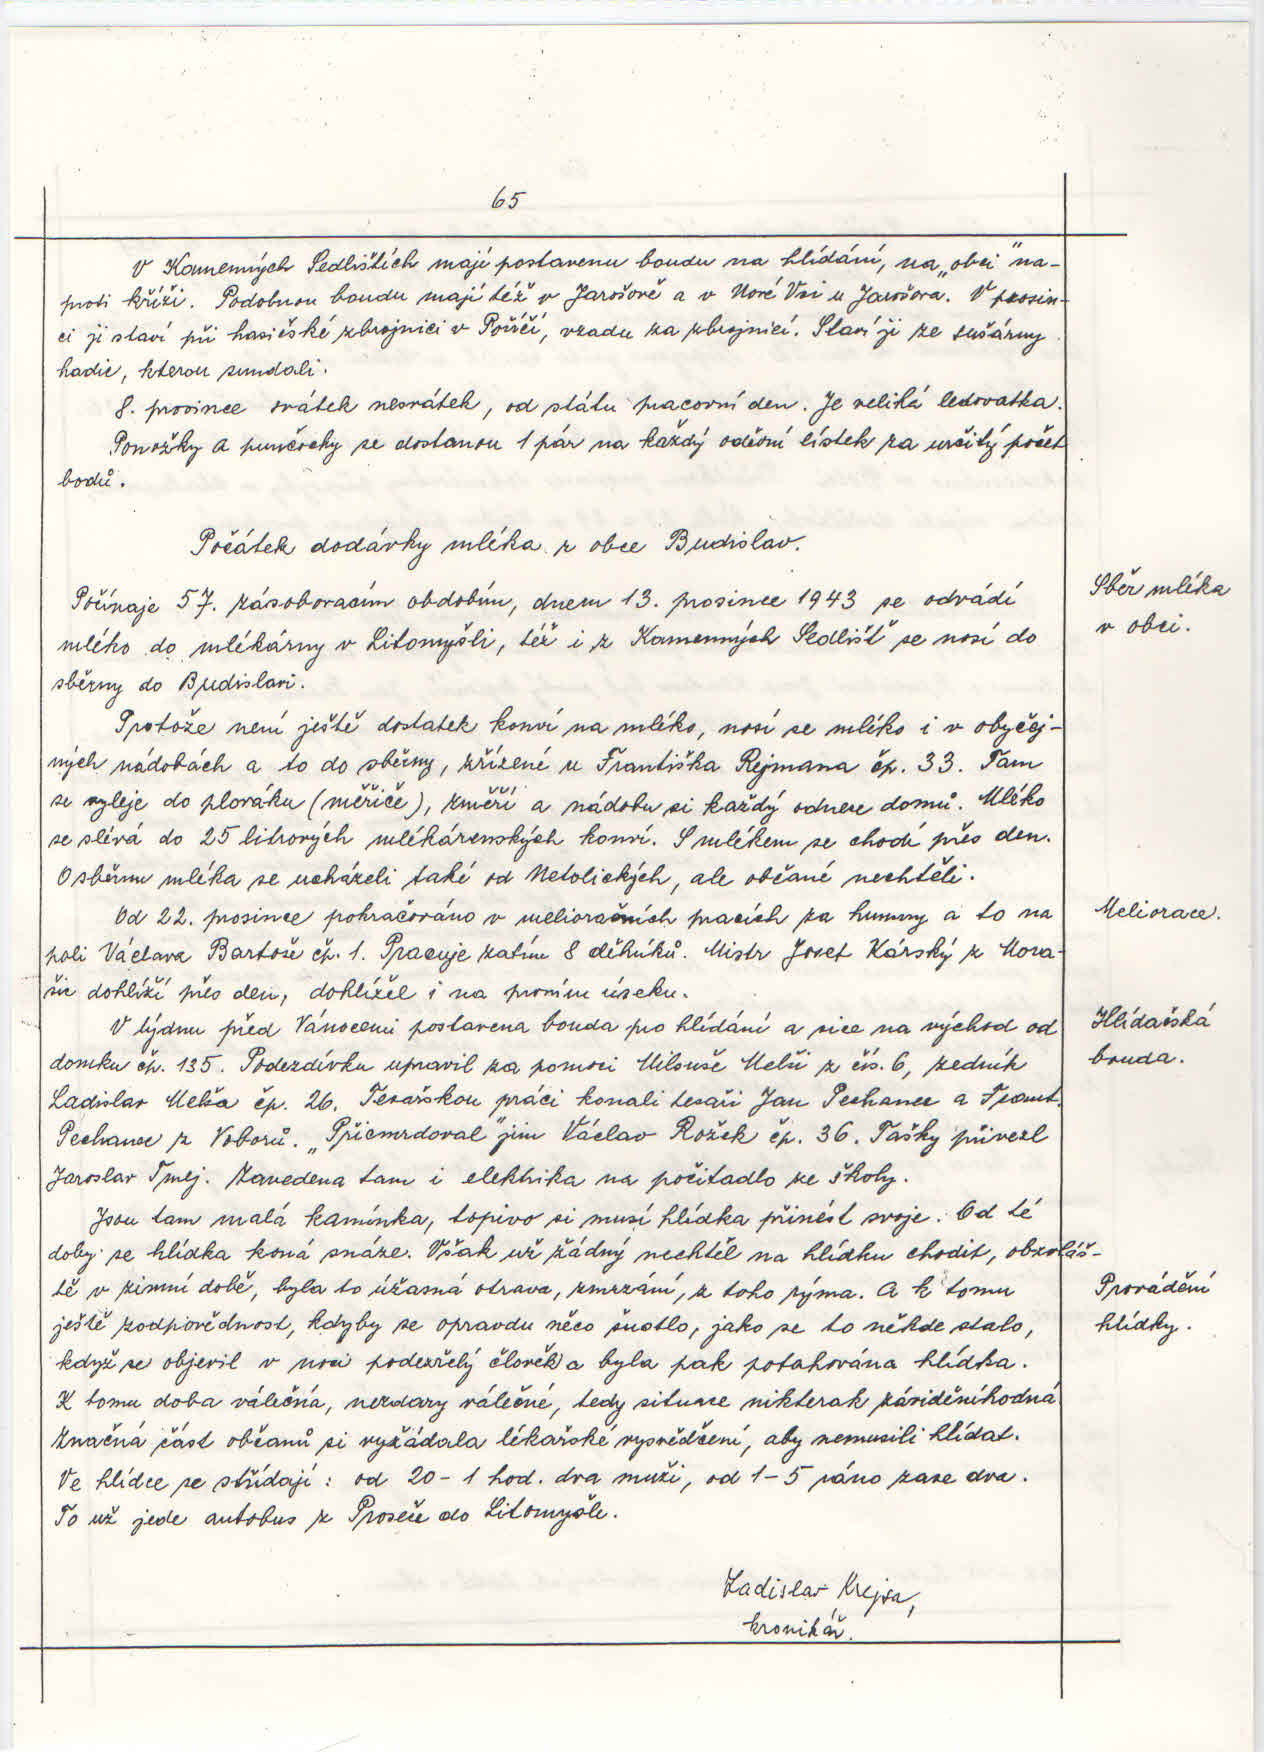 65
V Kamenných Sedlištích mají postavenu boudu na hlídání, na „obci" na-
proti kříži. Podobnou boudu mají též v Jarošově a v Nové Vsi u Jarošova. V prosin-
ci ji staví při hasičské zbrojnici v Poříčí, vzadu za zbrojnicí. Staví ji ze sušárny
hadic, kterou sundali.
8. prosince svátek nesvátek, od státu pracovní den. Je veliká ledovatka.
Ponožky a punčochy se dostanou 1 pár na každý oděvní lístek za určitý počet
bodů.
Počátek dodávky mléka z obce Budislav.
Počínaje 57. zásobovacím obdobím, dnem 13. prosince 1943 se odvádí
mléko do mlékárny v Litomyšli, též i z Kamenných Sedlišť se nosí do
sběrny do Budislavi.
Sběr mléka
v obci.
Protože není ještě dostatek konví na mléko, nosí se mléko i v obyčej-
ných nádobách a to do sběrny, zřízené u Františka Rejmana čp. 33. Tam
se vyleje do plováku (měřiče), změří a nádobu si každý odnese domů. Mléko
se slévá do 25 litrových mlékárenských konví. S mlékem se chodí přes den.
O sběrnu mléka se ucházeli také od Netolických, ale občané nechtěli.
Od 22. prosince pokračováno v melioračních pracích za humny a to na
poli Václava Bartoše čp. 1. Pracuje zatím 8 dělníků. Mistr Josef Kárský z Mora-
šic dohlíží přes den, dohlížel i na prvním úseku.
Meliorace.
V týdnu před Vánocemi postavena bouda pro hlídání a sice na východ od
domku čp. 135. Podezdívku upravil za pomoci Miluše Melši z čís. 6, zedník
Ladislav Melša čp. 26. Tesařskou práci konali tesaři Jan Pechanec a Frant.
Pechanec z Voborů. „Přicmrdoval" jim Václav Rožek čp. 36. Tašky přivezl
Jaroslav Tmej. Zavedena tam i elektrika na počitadlo ze školy.
Hlídačská
bouda.
Jsou tam malá kamínka, topivo si musí hlídka přinést svoje. Od té
doby se hlídka koná snáze. Však už žádný nechtěl na hlídku chodit, obzvláš-
tě v zimní době, byla to úžasná otrava, zmrzání, z toho rýma. A k tomu
ještě zodpovědnost, kdyby se opravdu něco šustlo, jako se to někde stalo,
když se objevil v noci podezřelý člověk a byla pak potahována hlídka.
K tomu doba válečná, nezdary válečné, tedy situace nikterak záviděníhodná
Značná část občanů si vyžádala lékařské vysvědčení, aby nemusili hlídat.
Ve hlídce se střídají: od 20-1 hod. dva muži, od 1-5 ráno zase dva.
To už jede autobus z Proseče do Litomyšle.
Provádění
hlídky.
Ladislav Krejsa,
kronikář.